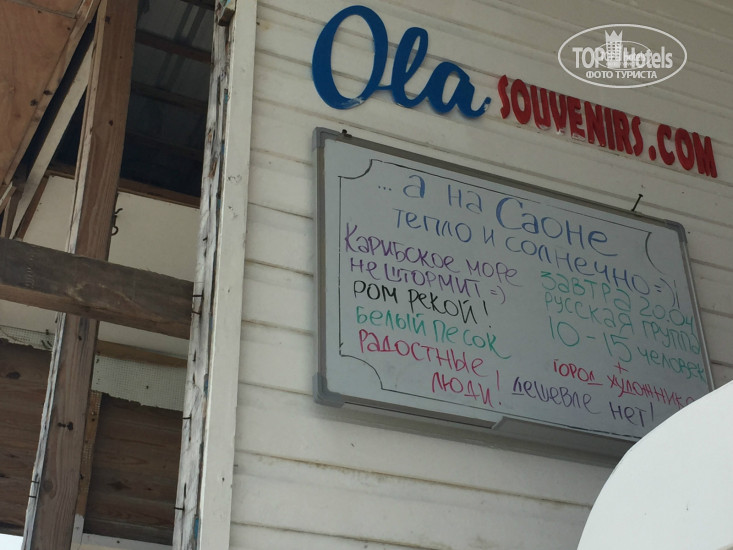 TOP Hotels
ФОТО ТУРИСТА
Ola SOUVENIRS.COM
...а на Саоне
тепло и солнечно =)!
Карибское море
не штормит =)
РОМ РЕКОЙ!
БЕЛЫЙ ПЕСОК
РАДОСТНЫЕ
ЛЮДИ!
ЗАВТРА 20.04
РУССКАЯ ГРУППА
10-15 человек
+
ГОРОД ХУДОЖНИКО
дешевле нет!